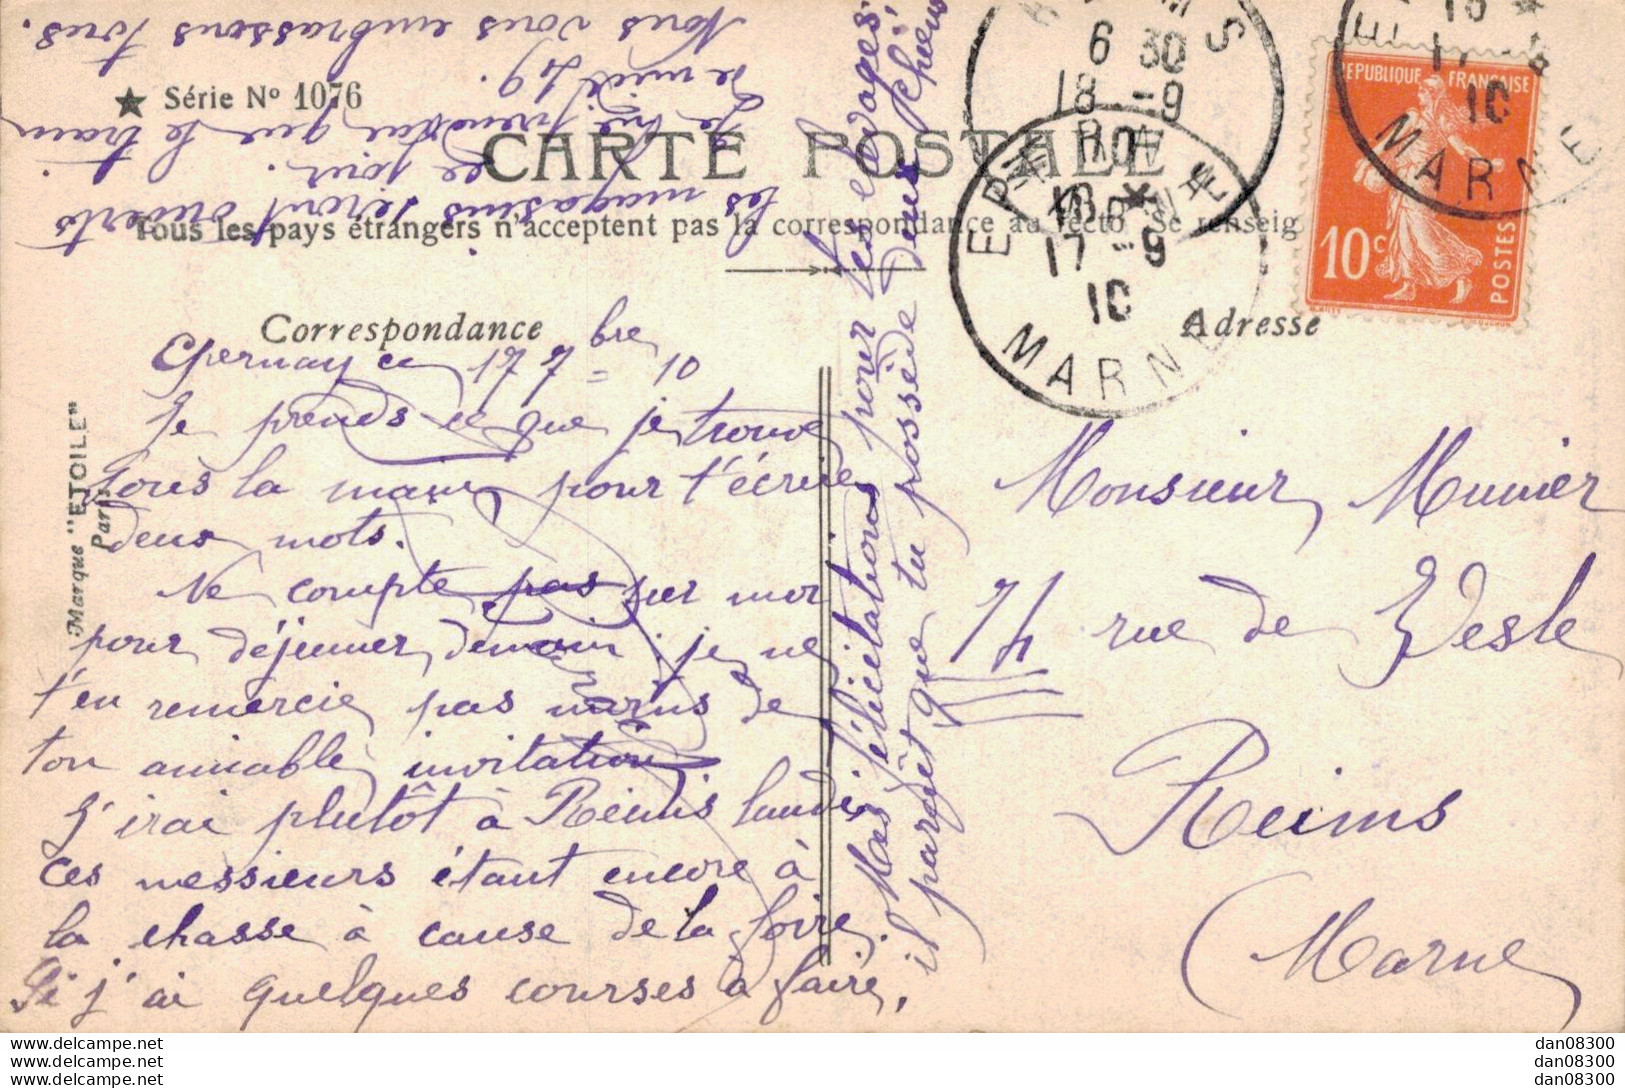 ★ Série Nº 1076
CARTE POSTALE
Tous les pays étrangers n'acceptent pas la correspondance au recto Se renseig
Correspondance
Adresse
Marque "ETOILE"
Paris
Epernay ce 17 7bre 10
Je prends ce que je trouve
sous la main pour t'écrire
deux mots.
Ne compte pas sur moi
pour déjeuner demain ; je ne
t'en remercie pas moins de
ton aimable invitation
J'irai plutôt à Reims lundi,
ces messieurs étant encore à
la chasse à cause de la foire.
Si j'ai quelques courses à faire,
les magasins seront ouverts
ce jour.
Je ne prendrai que le train
de midi 49.
Nous vous embrassons tous.
Mes félicitations pour tes élevages,
il paraît que tu possède deux chiens
Monsieur Munier
74 rue de Vesle
Reims
(Marne)
REPUBLIQUE FRANÇAISE
10c
POSTES
REIMS
6 30
18 -9
10
MARNE
EPERNAY
18 *
17 -9
10
MARNE
18 *
17 -9
10
MARNE
dan08300
dan08300
dan08300
dan08300
dan08300
dan08300